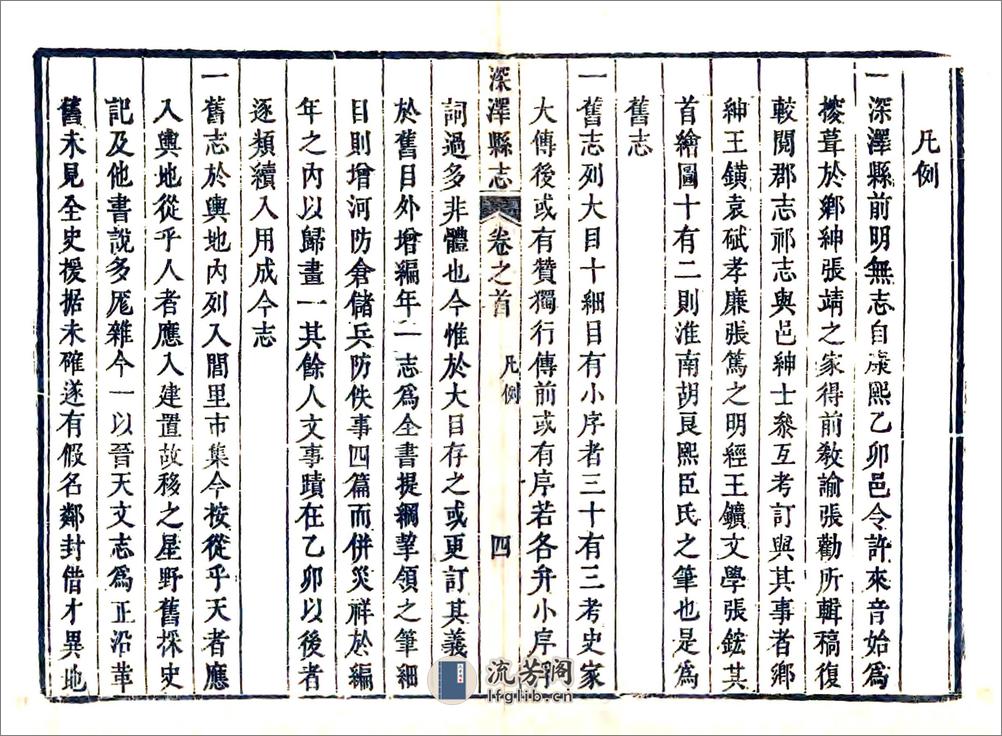 凡例
一深澤縣前明無志自康熙乙卯邑令許來音始為
搜葺於鄉紳張靖之家得前教諭張勸所輯稿復
較閱郡志祁志與邑紳士參互考訂與其事者鄉
紳王鐄袁斌孝廉張篤之明經王鑛文學張鋐其
首繪圖十有二則淮南胡良熙臣氏之筆也是為
舊志
一舊志列大目十細目有小序者三十有三考史家
大傳後或有贊獨行傳前或有序若各弁小序
深澤縣志
卷之首
凡例
四
詞過多非體也今惟於大目存之或更訂其義
於舊目外增編年一志為全書提綱挈領之筆細
目則增河防倉儲兵防佚事四篇而併災祥於編
年之內以歸畫一其餘人文事蹟在乙卯以後者
逐類續入用成今志
一舊志於輿地內列入閭里市集今按從乎天者應
入輿地從乎人者應入建置故移之星野舊採史
記及他書說多厖雜今一以晉天文志為正沿革
舊未見全史援据未確遂有假名鄰封借才異地
流芳閣
lfglib.cn